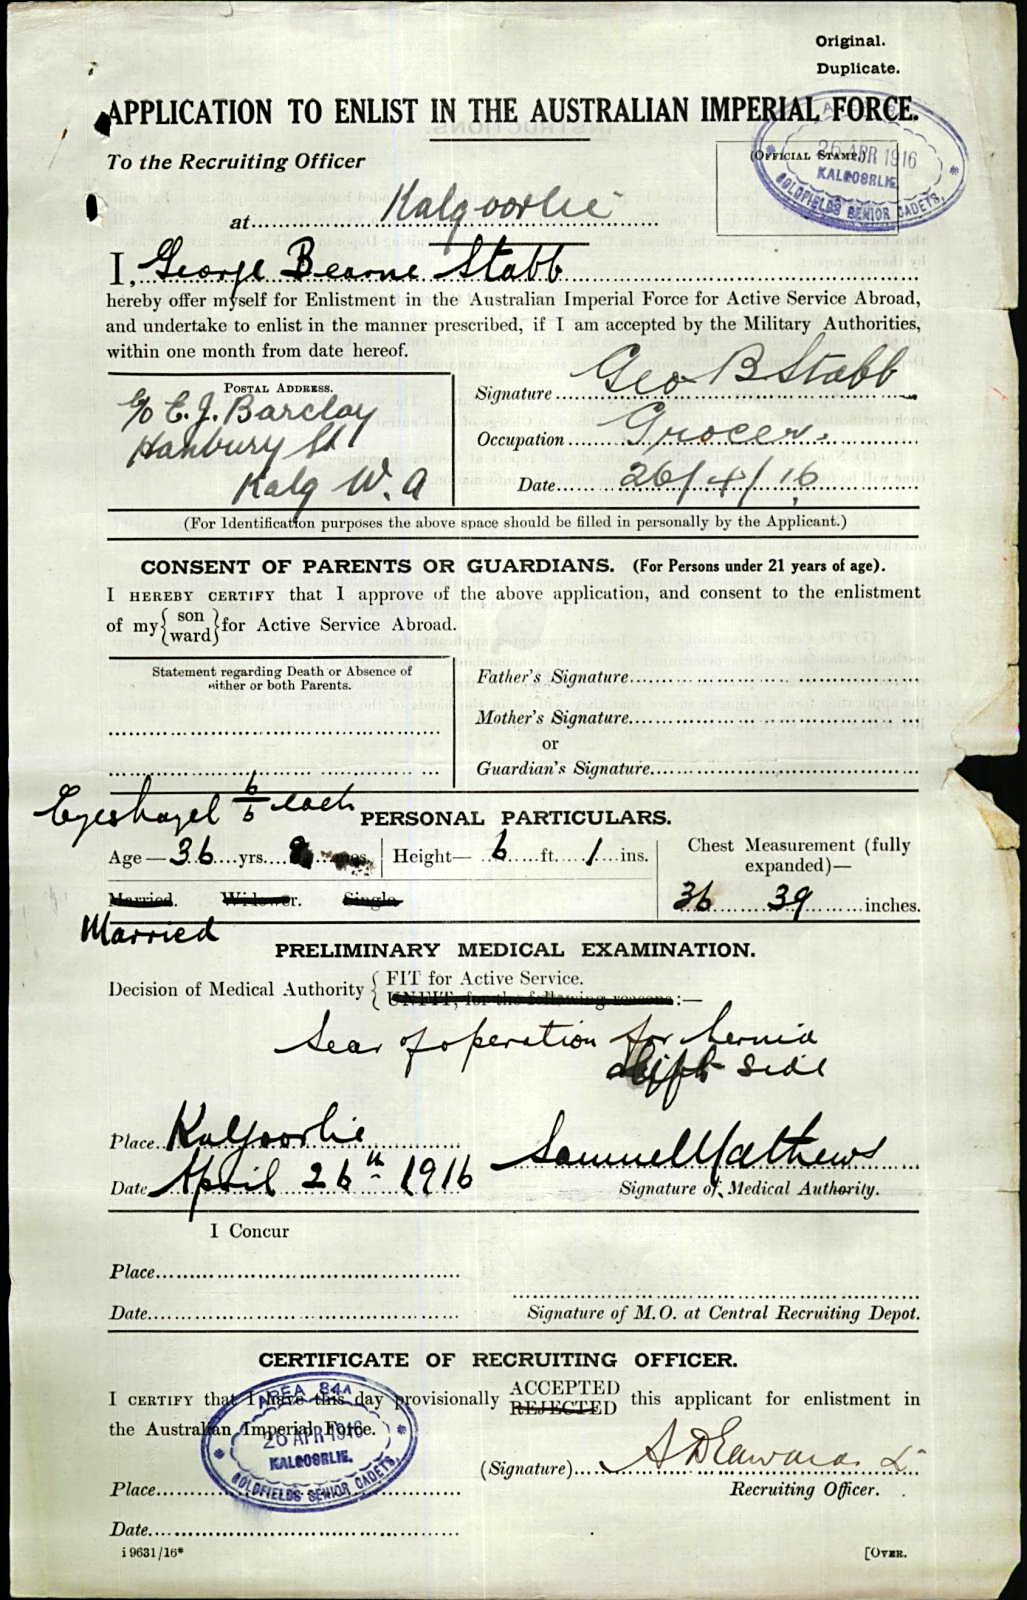 Original.
Duplicate.
APPLICATION TO ENLIST IN THE AUSTRALIAN IMPERIAL FORCE.
To the Recruiting Officer
(OFFICIAL STAMP.)
26 APR 1916
KALGOORLIE
GOLDFIELDS SENIOR CADETS.
at Kalgoorlie
I, George Bearne Stabb
hereby offer myself for Enlistment in the Australian Imperial Force for Active Service Abroad,
and undertake to enlist in the manner prescribed, if I am accepted by the Military Authorities,
within one month from date hereof.
POSTAL ADDRESS.
c/o E. J. Barclay
Hanbury St
Kalg W. A
Signature Geo B Stabb
Occupation Grocer.
Date 26/4/16
(For Identification purposes the above space should be filled in personally by the Applicant.)
CONSENT OF PARENTS OR GUARDIANS. (For Persons under 21 years of age).
I HEREBY CERTIFY that I approve of the above application, and consent to the enlistment
of my { son ward } for Active Service Abroad.
Statement regarding Death or Absence of
either or both Parents.
Father's Signature
Mother's Signature
or
Guardian's Signature
Eyes hazel 6/6 each
PERSONAL PARTICULARS.
Age—36 yrs.
Height— 6 ft. 1 ins.
Chest Measurement (fully
expanded)—
36 39 inches.
Married. Widower. Single.
Married
PRELIMINARY MEDICAL EXAMINATION.
Decision of Medical Authority { FIT for Active Service.
UNFIT, for the following reasons:—
Scar of operation for hernia
left side
Place Kalgoorlie
Date April 26th 1916
Samuel Mathews
Signature of Medical Authority.
I Concur
Place
Date
Signature of M.O. at Central Recruiting Depot.
CERTIFICATE OF RECRUITING OFFICER.
I CERTIFY that I have this day provisionally ACCEPTED REJECTED this applicant for enlistment in
the Australian Imperial Force.
AREA 84A
26 APR 1916
KALGOORLIE.
GOLDFIELDS SENIOR CADETS.
(Signature)
Recruiting Officer.
Place
Date
i 9631/16*
[OVER.